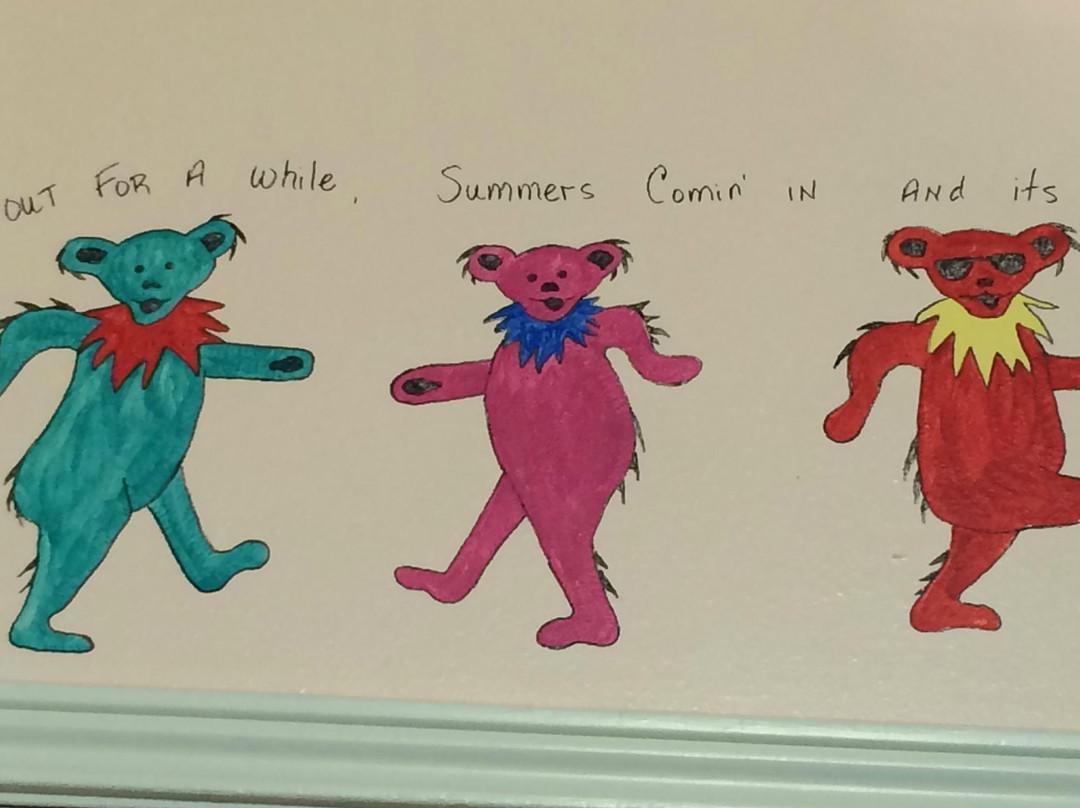 OUT FOR A While, Summers Comin' IN ANd its